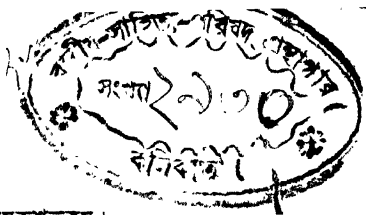 বঙ্গীয়-সাহিত্য-পরিষদ গ্রন্থাগার
সংখ্যা
কলিকাতা